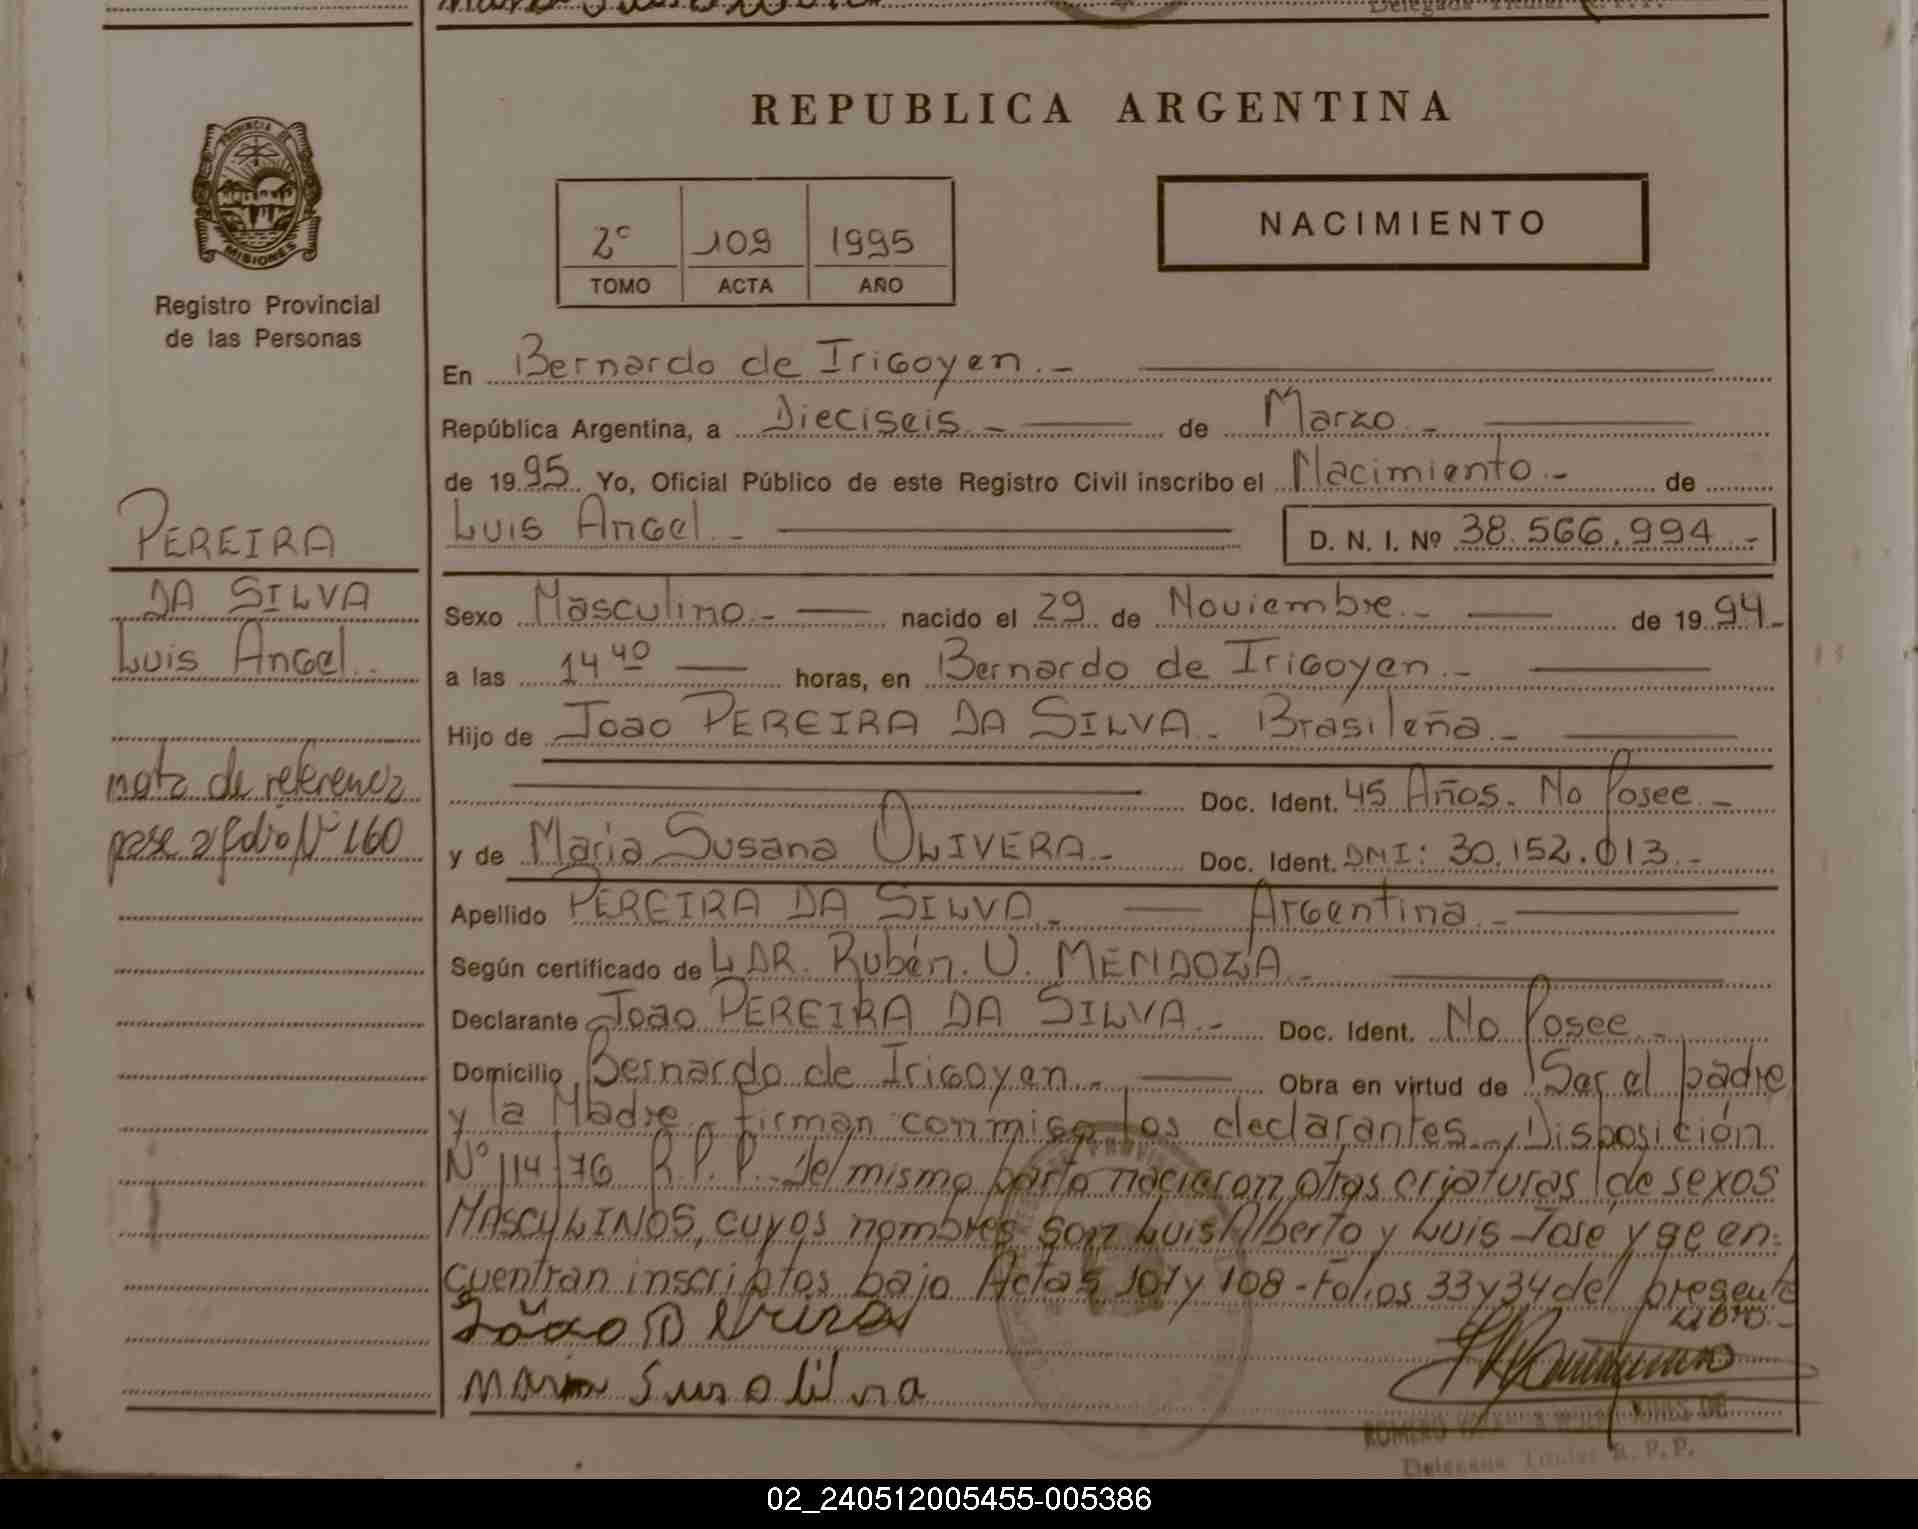 Delegada Titular R.P.P.
REPUBLICA ARGENTINA
PROVINCIA DE
MISIONES
Registro Provincial
de las Personas
2º 109 1995
TOMO ACTA AÑO
NACIMIENTO
En Bernardo de Irigoyen.-
República Argentina, a Dieciseis.- de Marzo.-
de 1995 Yo, Oficial Público de este Registro Civil inscribo el Nacimiento.- de
Luis Angel.- D. N. I. Nº 38.566.994.-
PEREIRA
DA SILVA
Luis Angel.
nota de referencia
pase a folio Nº 160
Sexo Masculino.- nacido el 29 de Noviembre.- de 1994.-
a las 14 40 horas, en Bernardo de Irigoyen.-
Hijo de Joao PEREIRA DA SILVA.- Brasileña.-
Doc. Ident. 45 Años. No Posee.-
y de Maria Susana OLIVERA.- Doc. Ident. DNI: 30.152.013.-
Apellido PEREIRA DA SILVA.- Argentina.-
Según certificado de L DR. Rubén. U. MENDOZA.-
Declarante Joao PEREIRA DA SILVA.- Doc. Ident. No Posee.-
Domicilio Bernardo de Irigoyen.- Obra en virtud de Ser el padre
y la Madre.- firman conmigo los declarantes.- Disposición
Nº 114/76 R.P.P.- Del mismo parto nacieron otras criaturas de sexos
MASCULINOS, cuyos nombres son Luis Alberto y Luis Jose y se en-
cuentran inscriptos bajo Actas 107 y 108 - Folios 33 y 34 del presente
Libro.-
ROMERO
Delegada Titular R.P.P.
02_240512005455-005386